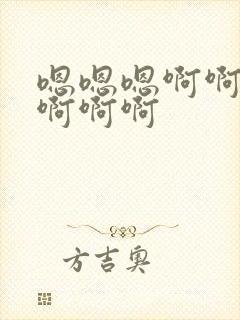 嗯嗯嗯啊啊
啊啊啊
方吉奥